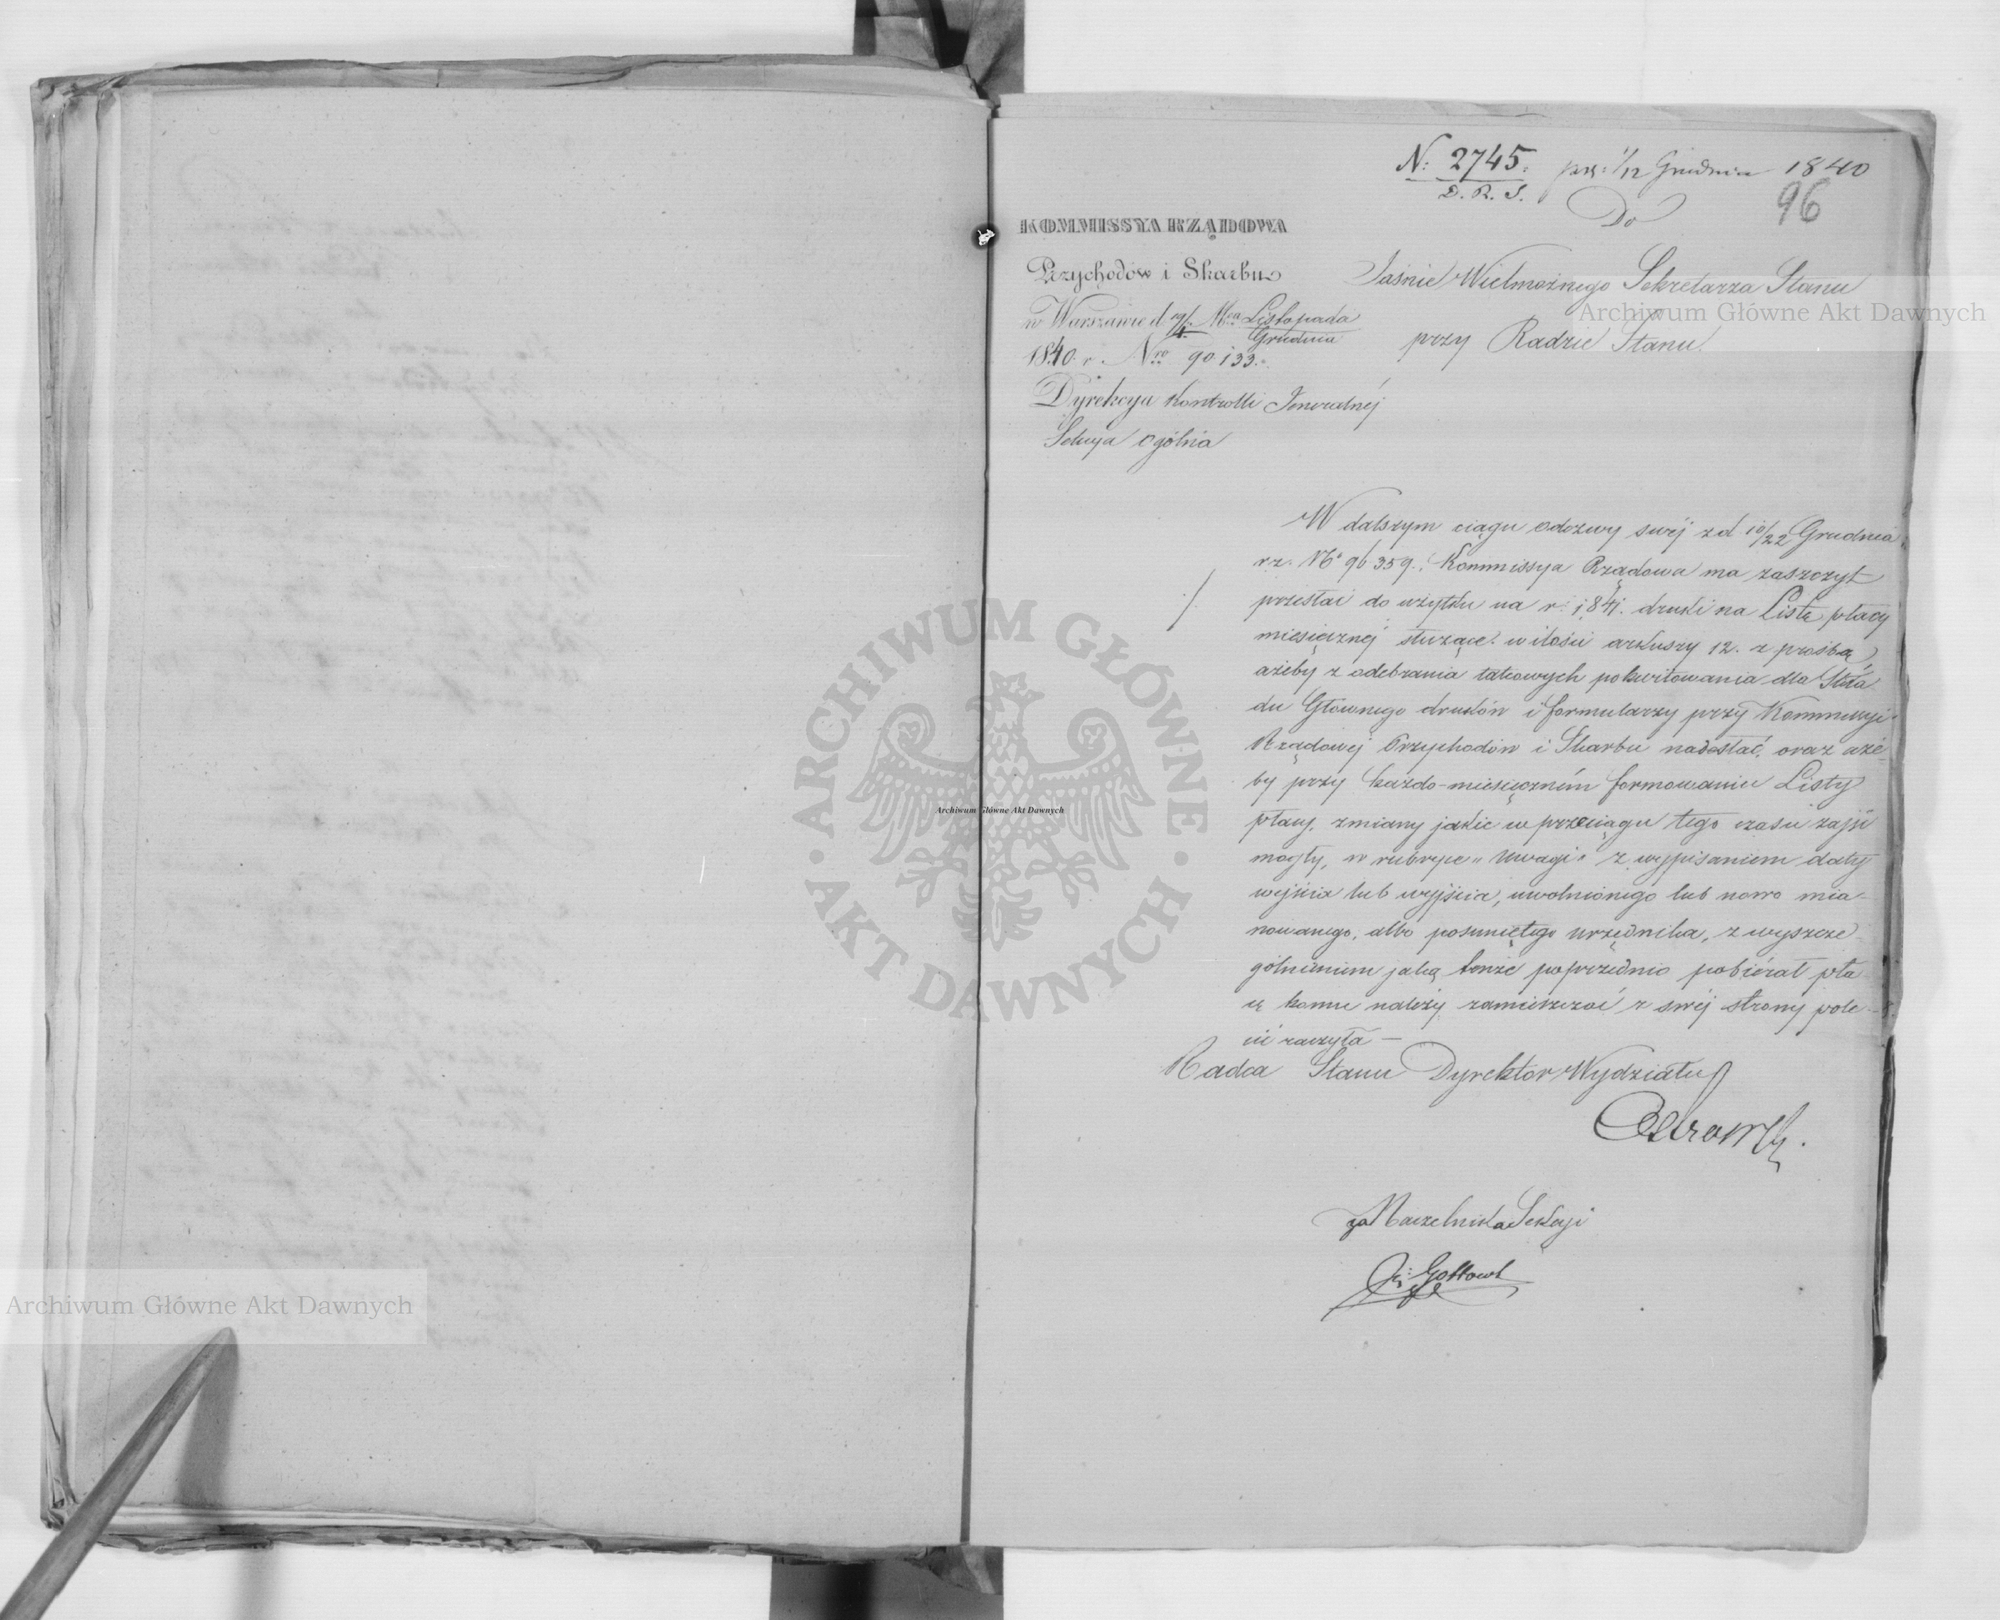 N: 2745. prz: 1/12 Grudnia 1840
D. R. S.
96
Do
KOMMISSYA RZĄDOWA
Przychodów i Skarbu
Jaśnie Wielmożnego Sekretarza Stanu
w Warszawie d. 19/1 Mca Listopada
Grudnia
przy Radzie Stanu.
1840. r. Nro 90133.
Dyrekcya Kontrolli Jeneralnéj
Sekcya Ogólna
W dalszym ciągu odezwy swéj z d 10/22 Grudnia
r.z. No 96359. Kommissya Rządowa ma zaszczyt
przesłać do użytku na r. 1841. druki na Listę płacy
miesięcznéj służące w ilości arkuszy 12. z prośbą
ażeby z odebrania takowych pokwitowania dla Skła
du Głównego druków i formularzy przy Kommissyi
Rządowej Przychodów i Skarbu nadesłać, oraz aże-
by przy każdo-miesięczném formowaniu Listy
płacy, zmiany jakie w przeciągu tego czasu zajść
mogły, w rubryce „Uwagi" z wypisaniem daty
wejścia lub wyjścia, uwolnionego lub nowo mia-
nowanego, albo posuniętego urzędnika, z wyszcze-
gólnieniem jaką tenże poprzednio pobiérał pła-
cę komu należy zamieszczać z swéj strony pole-
cić raczyła —
Radca Stanu Dyrektor Wydziału
za Naczelnika Sekcyi
Gottowt
Archiwum Główne Akt Dawnych
Archiwum Główne Akt Dawnych
Archiwum Główne Akt Dawnych
ARCHIWUM GŁÓWNE
AKT DAWNYCH